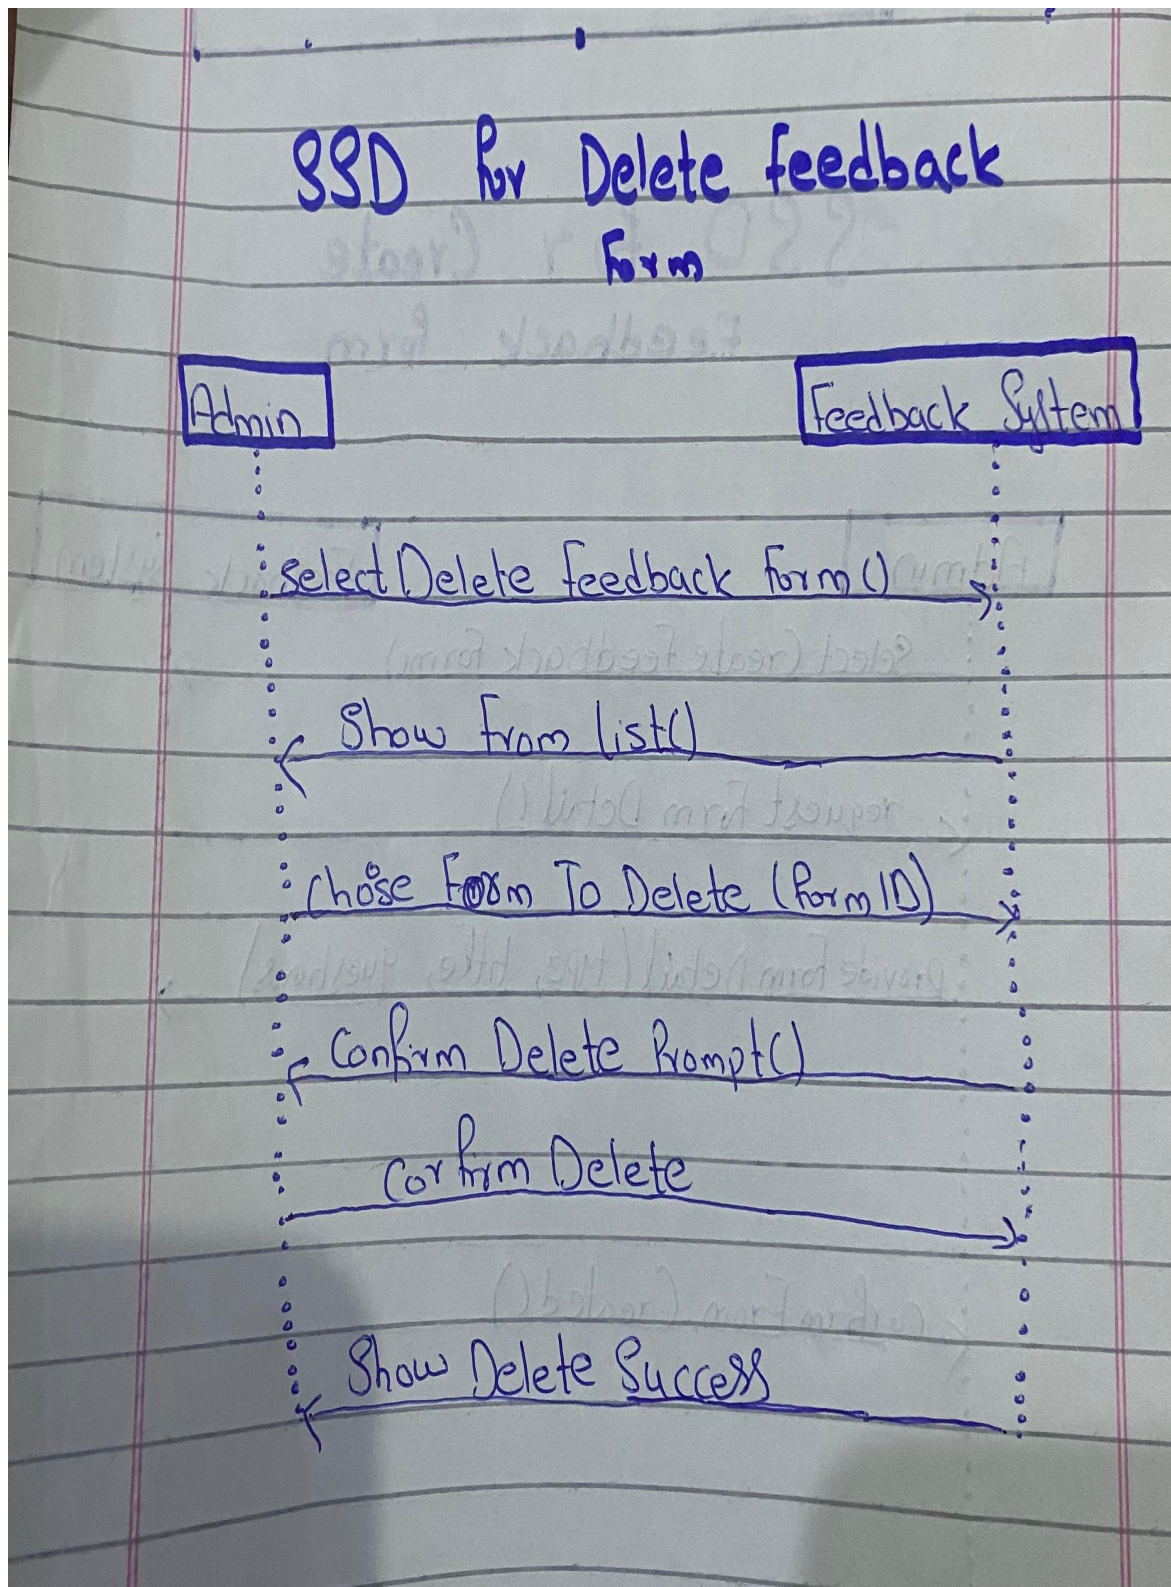 SSD for Delete feedback
Form
Admin
Feedback System
select Delete feedback form()
Show from list()
chose Form To Delete (form ID)
Confirm Delete Prompt()
Confirm Delete
Show Delete Success